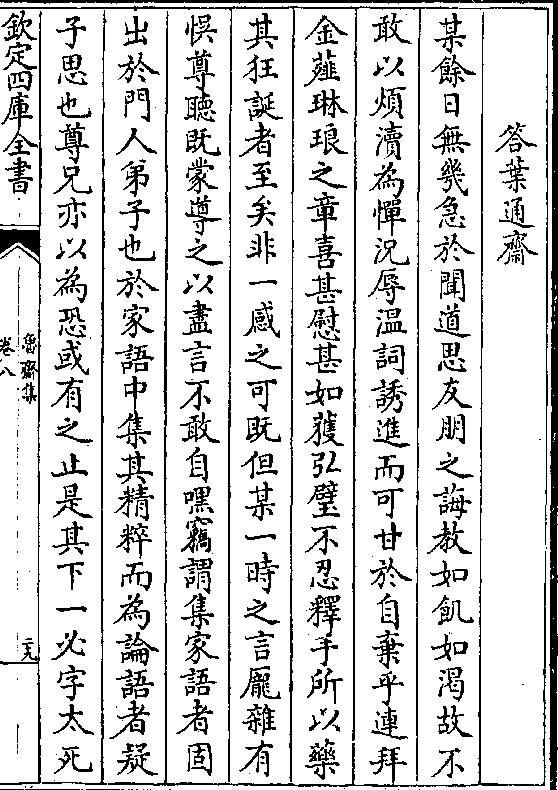 答葉通齋
某餘日無幾急於聞道思友朋之誨教如飢如渴故不
敢以煩瀆為憚況辱溫詞誘進而可甘於自棄乎連拜
金薤琳琅之章喜甚慰甚如獲弘璧不忍釋手所以藥
其狂誕者至矣非一感之可既但某一時之言厖雜有
悞尊聽既蒙導之以盡言不敢自嘿竊謂集家語者固
出於門人弟子也於家語中集其精粹而為論語者疑
子思也尊兄亦以為恐或有之止是其下一必字太死
欽定四庫全書
魯齋集
卷八
二九